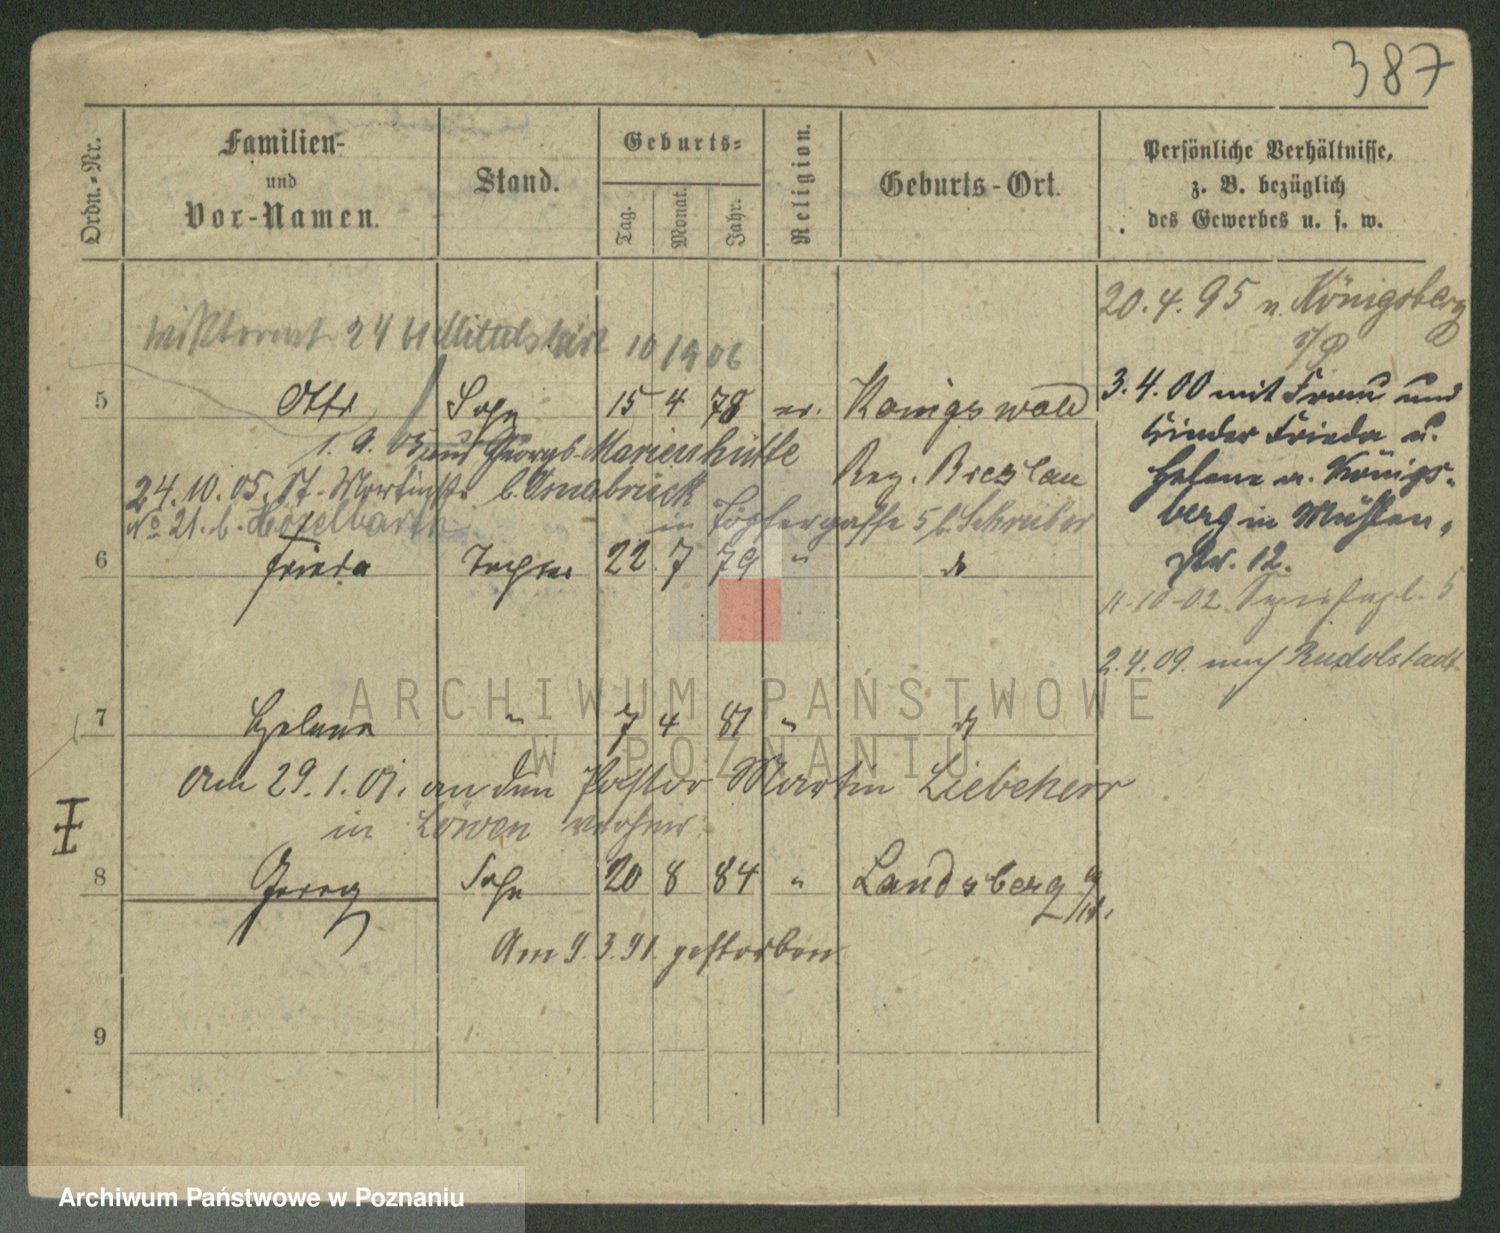 387
Ordn.-Nr.
Familien-
und
Vor-Namen.
Stand.
Geburts-
Tag.
Monat.
Jahr.
Religion.
Geburts-Ort.
Persönliche Verhältnisse,
z. B. bezüglich
des Gewerbes u. s. w.
20.4.95 n. Königsberg
i/P
24 10 1906
5 Otto Sohn 15 4 78 ev. Königswald
3.4.00 mit Frau und
Kinder Frieda u.
1.9.05 aus Georgs-Marienhütte
Reg. Breslau
Helene n. Königs-
24.10.05. St. Martinstr. b. Osnabrück
No 21. b.
in Töpfergasse 5 b. Schreiber
berg in Mühlen-
6 Frieda Tochter 22 7 79 " do
str. 12.
11-10-02
2.4.09. nach Rudolstadt
ARCHIWUM PAŃSTWOWE
7 Helene " 7 4 81 " do
W POZNANIU
Am 29.1.01. an den Pastor Martin Liebeherr
in Löwen verheir.
8 Georg Sohn 20 8 84 " Landsberg a/W.
Am 9.3.91. gestorben
9
Archiwum Państwowe w Poznaniu